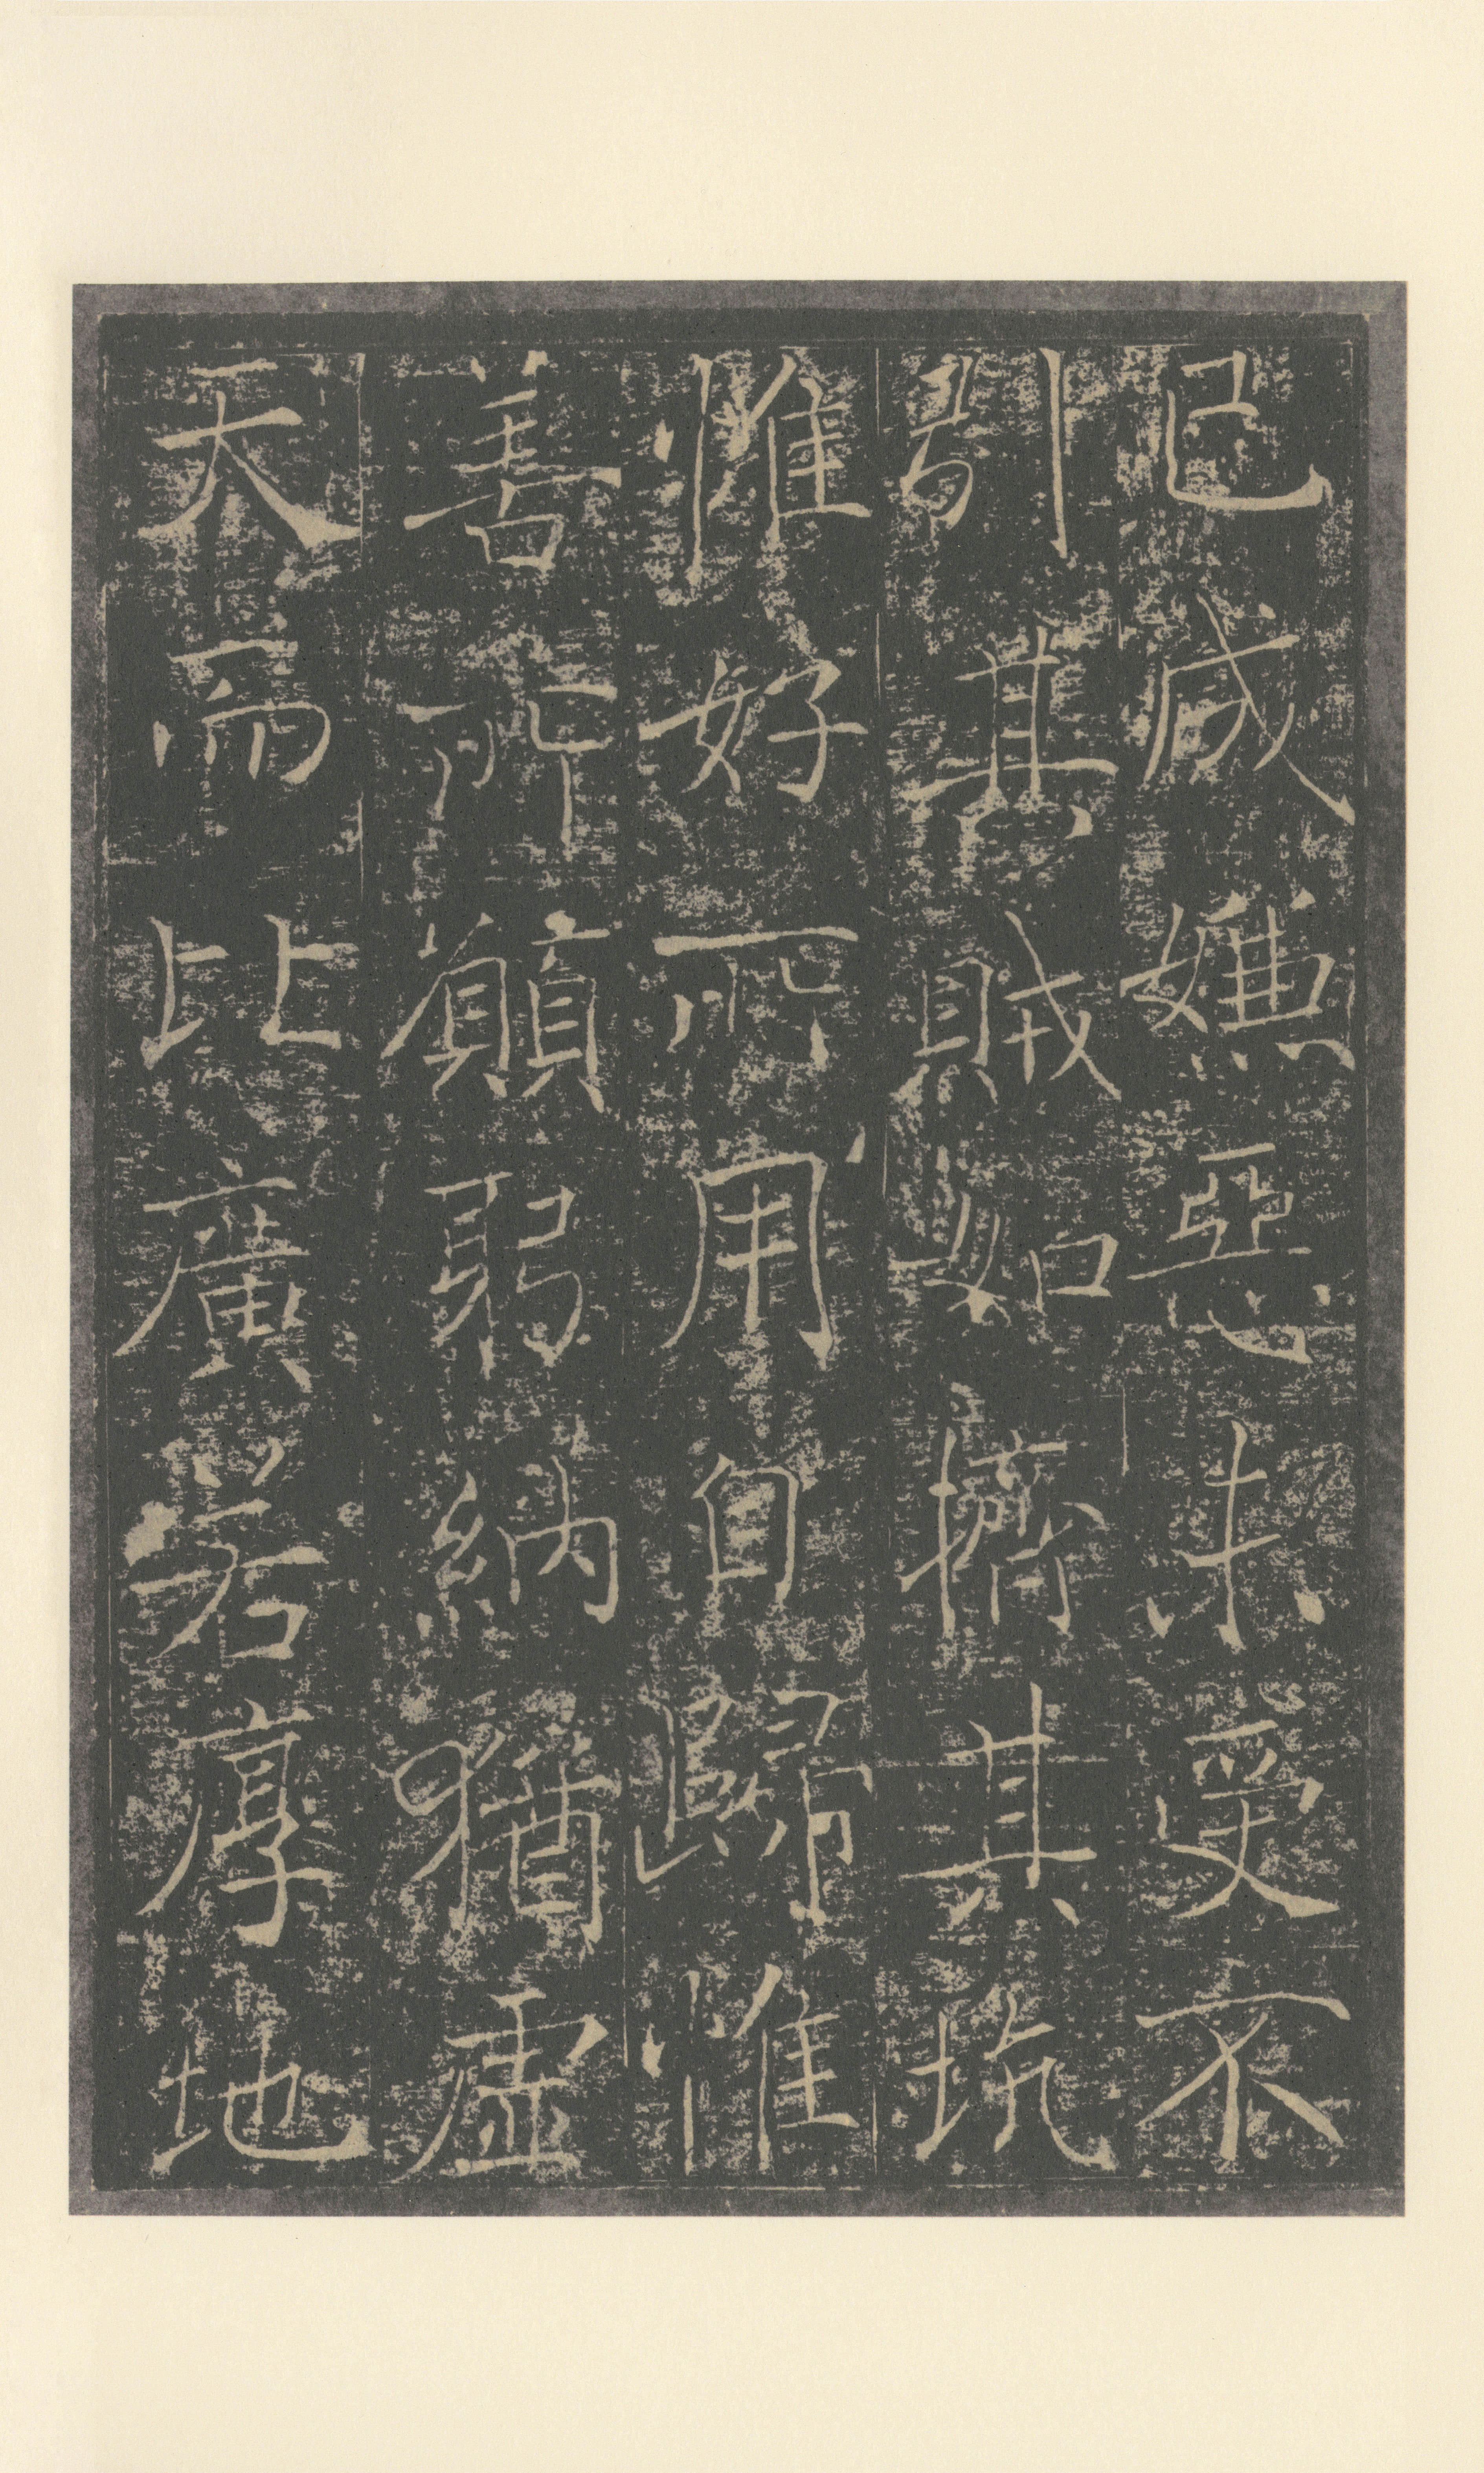 己成嫌惡未受不
引其賊如擠其坑
惟好所用自歸惟
善所願弱納猶虛
天而比廣若厚地